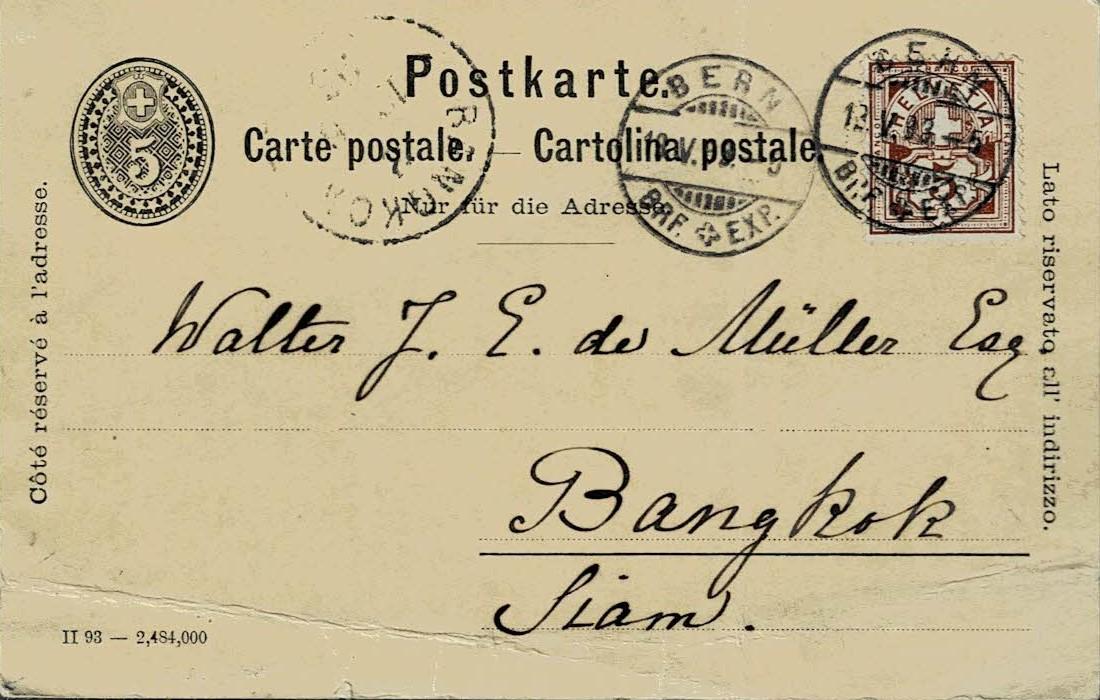 Postkarte.
Carte postale. — Cartolina postale
Nur für die Adresse.
5
BANGKOK
BERN
BRF. EXP.
BERN
13 V.93.
BRF. EXP.
HELVETIA
5
Côté réservé à l'adresse.
Lato riservato all' indirizzo.
Walter J. E. de Müller Esq.
Bangkok
Siam.
II 93 — 2,484,000